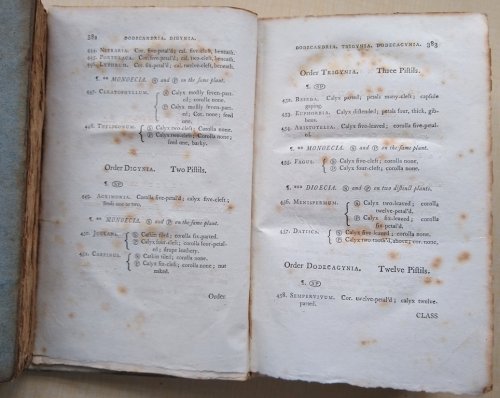 382 DODECANDRIA, DIGYNIA.
444. NITRARIA. Cor. five-petal'd; cal. five-cleft, beneath.
445. PORTULACA. Cor. five-petal'd; cal. two-cleft, beneath.
446. LYTHRUM. Cor. six-petal'd; cal. twelve-cleft, beneath.
¶. ** MONOECIA. Ⓢ and Ⓟ on the same plant.
447. CERATOPHYLLUM. Ⓢ Calyx mostly seven-parted; corolla none.
Ⓟ Calyx mostly seven-parted; Cor. none; seed one.
448. THELIGONUM. Ⓢ Calyx two-cleft; Corolla none.
Ⓟ Calyx two-cleft; Corolla none, seed one, barky.
Order DIGYNIA. Two Pistils.
¶. ⓈⓅ
449. AGRIMONIA. Corolla five-petal'd; calyx five-cleft; seeds one or two.
¶. ** MONOECIA. Ⓢ and Ⓟ on the same plant.
450. JUGLANS. Ⓢ Catkin tiled; corolla six-parted.
Ⓟ Calyx four-cleft; corolla four-petaled; drupe leathery.
451. CARPINUS. Ⓢ Catkin tiled; corolla none;
Ⓟ Calyx six-cleft; corolla none; nut naked.
Order
DODECANDRIA, TRIGYNIA, DODECAGYNIA. 383
Order TRIGYNIA. Three Pistils.
¶. ⓈⓅ
452. RESEDA. Calyx parted; petals many-cleft; capsule gaping.
453. EUPHORBIA. Calyx distended; petals four, thick, gibbous.
454. ARISTOTELIA. Calyx five-leaved; corolla five-petaled.
¶. ** MONOECIA. Ⓢ and Ⓟ on the same plant.
455. FAGUS. Ⓢ Calyx five-cleft; corolla none.
Ⓟ Calyx five-cleft; corolla none.
¶. *** DIOECIA. Ⓢ and Ⓟ on two distinct plants.
456. MENISPERMUM. Ⓢ Calyx two-leaved; corolla twelve-petal'd.
Ⓟ Calyx six-leaved; corolla six-petal'd.
457. DATISCA. Ⓢ Calyx five-leaved; corolla none.
Ⓟ Calyx two tooth'd, above; cor. none.
Order DODECAGYNIA. Twelve Pistils.
¶. ⓈⓅ
458. SEMPERVIVUM. Cor. twelve-petal'd; calyx twelve-parted.
CLASS